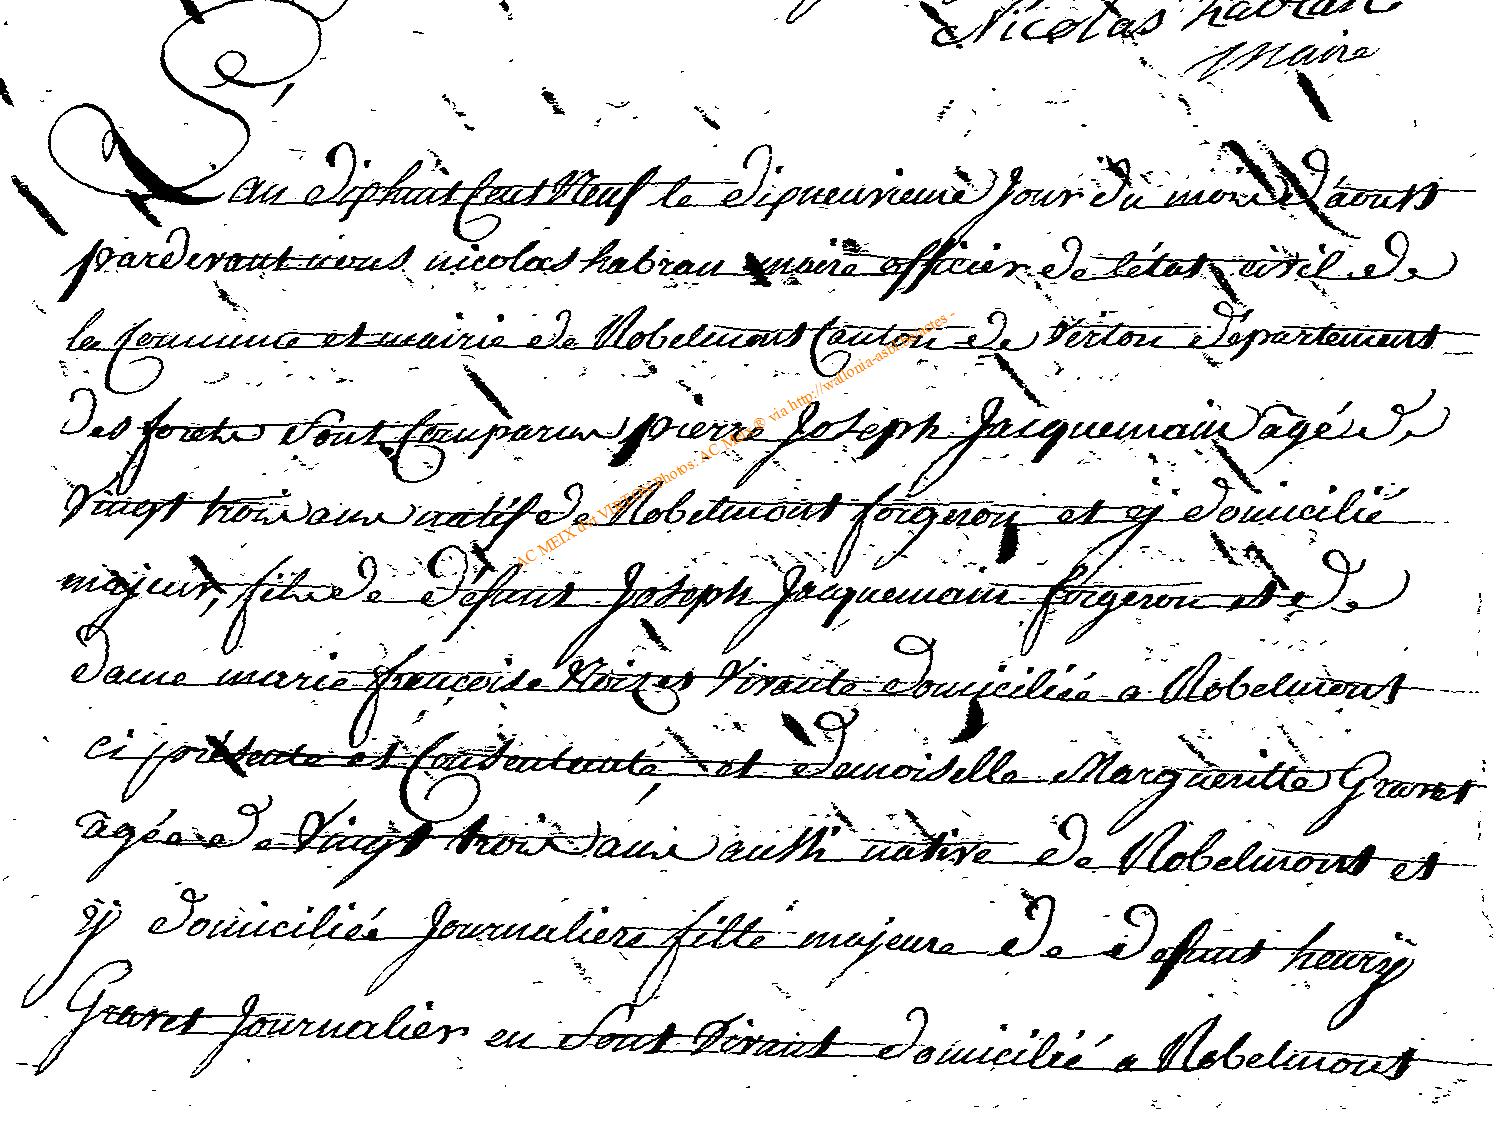 Nicolas habran
maire
L'an dixhuit Cent Neuf le dixneuvieme Jour du mois d'aoust
pardevant nous nicolas habran maire officier de l'état civil de
la Commune et mairie de Robelmont Canton de Virton département
des forets sont Comparus pierre Joseph Jacquemain âgé de
vingt trois ans natif de Robelmont forgeron et ÿ domicilié
majeur, fils de défunt Joseph Jacquemain forgeron et de
dame marie françoise Noizet vivante domiciliée a Robelmont
ci présente et Consentante, et demoiselle Margueritte Gravet
âgée de vingt trois ans aussi native de Robelmont et
ÿ domiciliée Journaliere fille majeure de defunt henry
Gravet Journalier en sont vivant domicilié a Robelmont
AC MEIX dvt VIRTON Photos: AC Meix® via http://wallonia-asbl.be/actes -